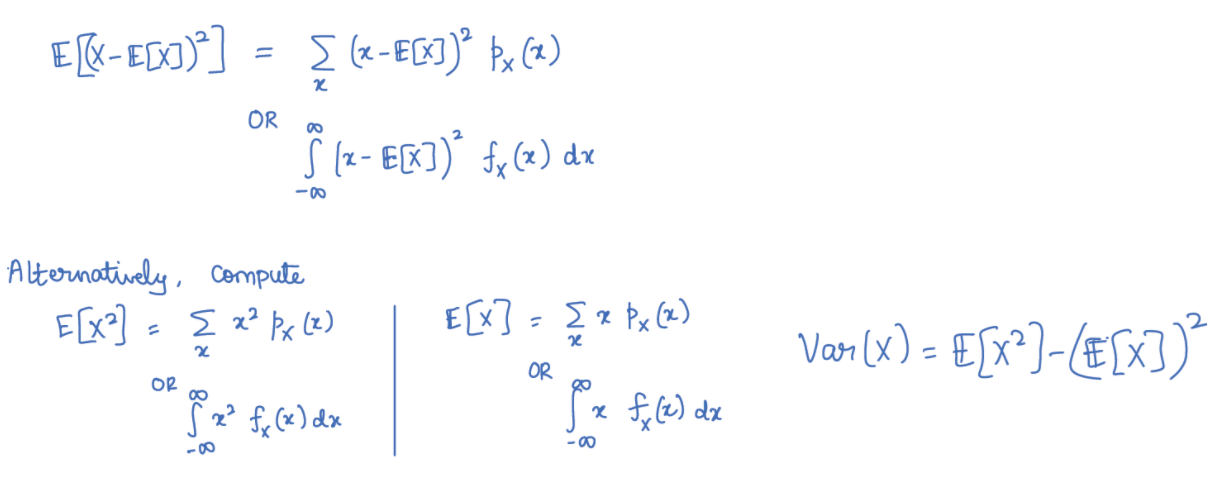 𝔼[(X-𝔼[X])²] = ∑ₓ (x-𝔼[X])² pₓ(x)
OR
∫_{-∞}^{∞} (x-𝔼[X])² fₓ(x) dx
Alternatively, compute
E[X²] = ∑ₓ x² pₓ(x)
OR
∫_{-∞}^{∞} x² fₓ(x) dx
E[X] = ∑ₓ x pₓ(x)
OR
∫_{-∞}^{∞} x fₓ(x) dx
Var(X) = 𝔼[X²]-(𝔼[X])²